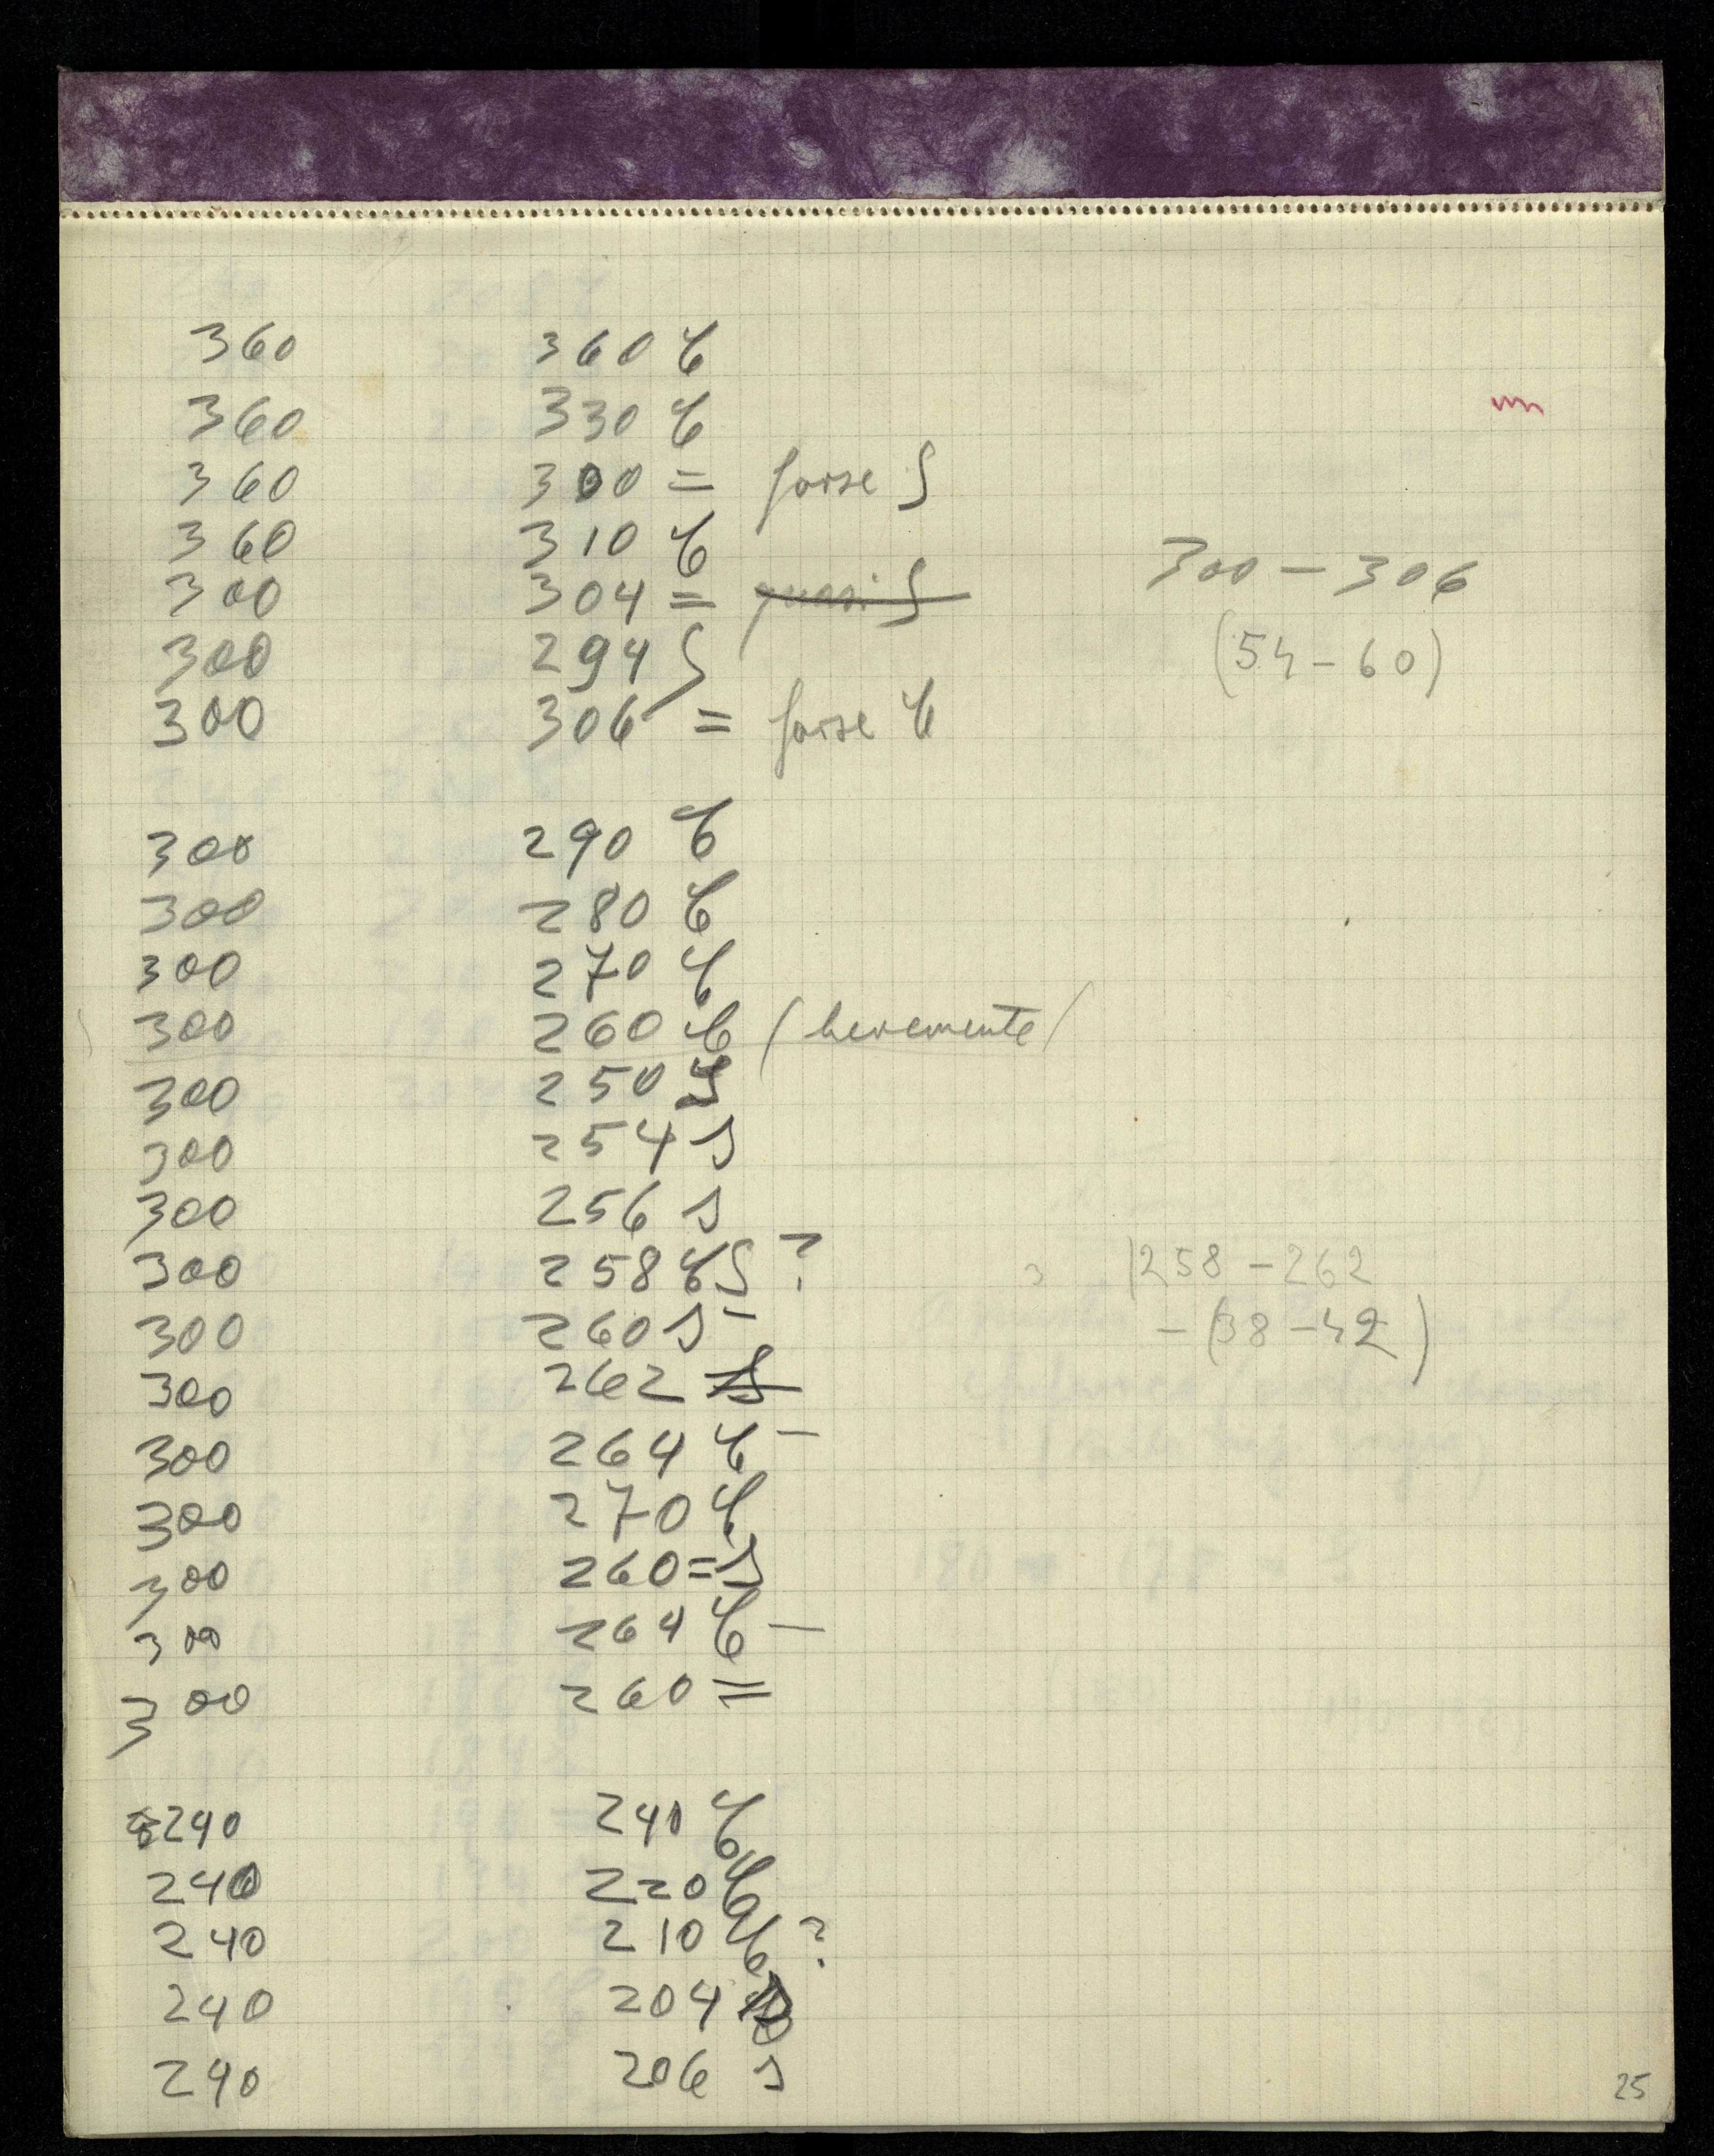 360 360 C
360 330 C
360 300 = forse S
360 310 C
300 304 = quasi S
300 294 S
300 306 = forse C
300 - 306
(54 - 60)
300 290 C
300 280 C
300 270 C
300 260 C (lievemente)
300 250 S
300 254 S
300 256 S
300 258 C S ?
300 260 S -
300 262 S
300 264 C -
300 270 C
300 260 = S
300 264 C -
300 260 =
258 - 262
- (38 - 42)
240 240 C
240 220 C
240 210 C ?
240 204
240 206 S
25